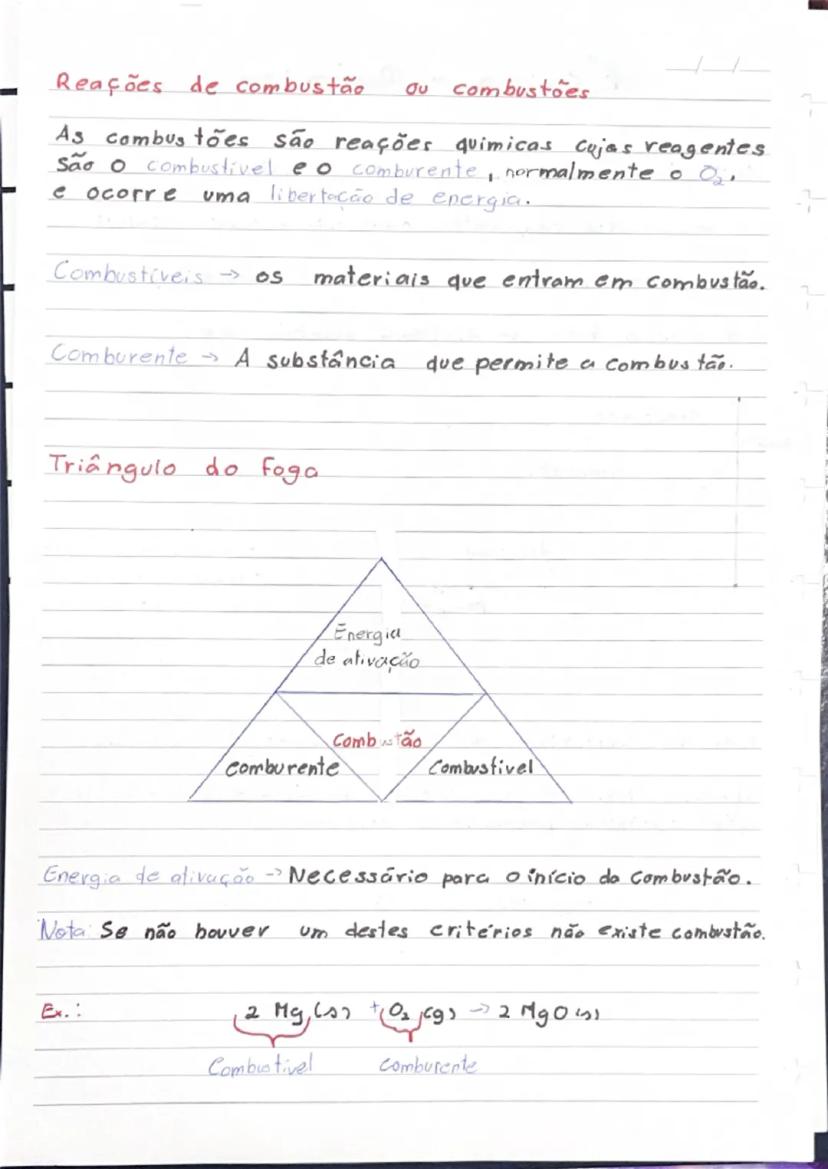 Reações de combustão ou combustões
As combustões são reações químicas cujas reagentes
são o combustível e o comburente, normalmente o O₂,
e ocorre uma libertação de energia.
Combustíveis → os materiais que entram em combustão.
Comburente → A substância que permite a combustão.
Triângulo do foga
Energia
de ativação
Combustão
Comburente
Combustível
Energia de ativação → Necessário para o início da combustão.
Nota: Se não houver um destes critérios não existe combustão.
Ex.: 2 Mg (s) + O₂ (g) → 2 MgO (s)
Combustível comburente